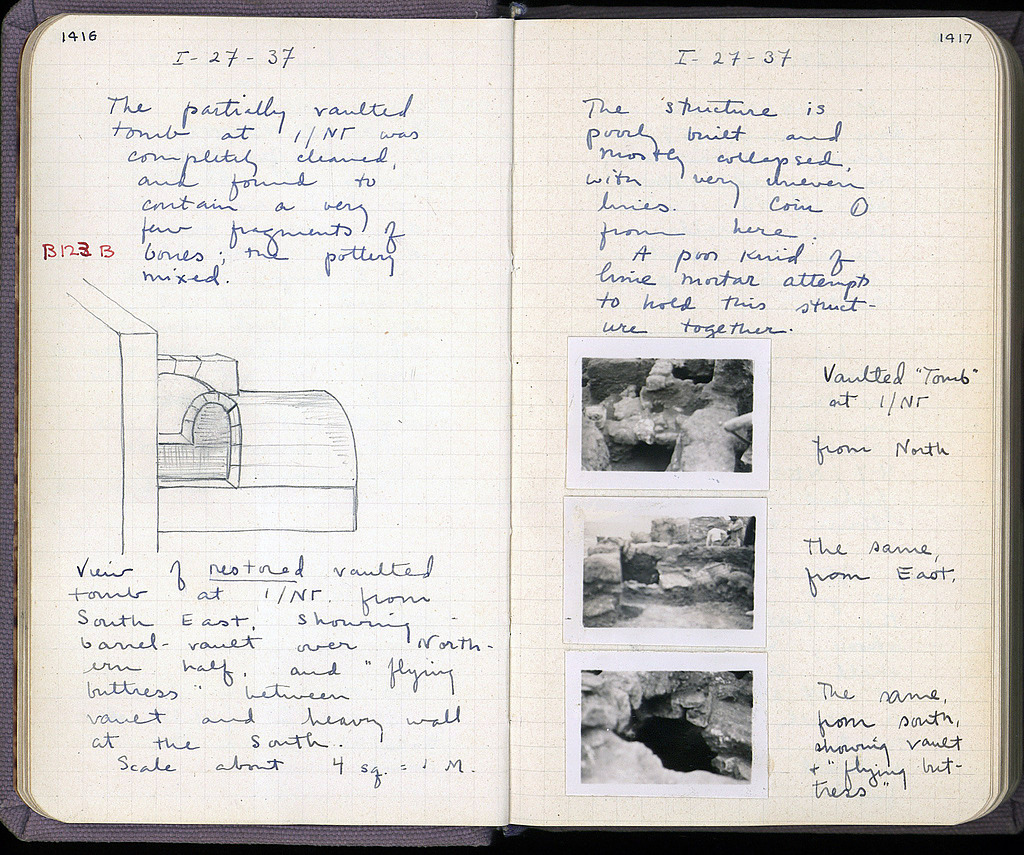 1416
I-27-37
The partially vaulted
tomb at 1/ΝΓ was
completely cleaned,
and found to
contain a very
few fragments of
B123 B bones; the pottery
mixed.
View of restored vaulted
tomb at 1/ΝΓ. from
South East, showing
barrel-vault over North-
ern half, and "flying
buttress" between
vault and heavy wall
at the South.
Scale about 4 sq. = 1 M.
1417
I-27-37
The structure is
poorly built and
mostly collapsed,
with very uneven
lines. Coin ①
from here.
A poor kind of
lime mortar attempts
to hold this struct-
ure together.
Vaulted "Tomb"
at 1/ΝΓ
from North
The same,
from East.
The same,
from south,
showing vault
+ "flying but-
tress"